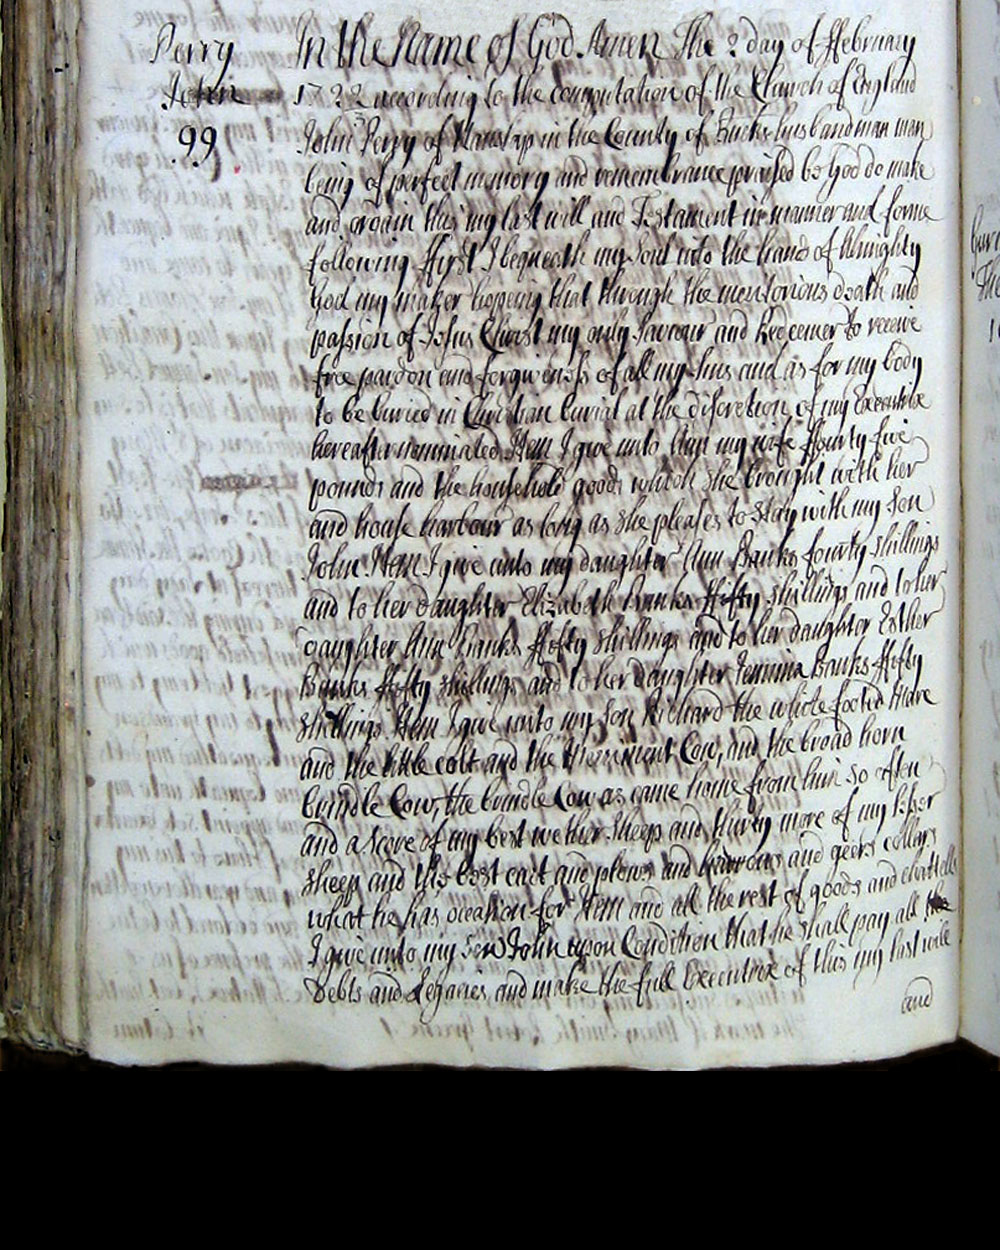 Perry
John
99
In the Name of God Amen The 2 day of ffebruary
1722 according to the computation of the Church of England
3
John Perry of Hanslap in the County of Bucks husbandman man
being of perfect memory and remembrance praised be God do make
and ordain this my last will and Testament in manner and forme
following ffirst I bequeath my Soul into the hands of Almighty
God my maker hopeing that through the meritorious death and
passion of Jesus Christ my only Saviour and Redeemer to receive
free pardon and forgiveness of all my Sins and as for my body
to be buried in Christian burial at the discretion of my Executrix
hereafter nominated Item I give unto Ann my wife ffourty five
pounds and the household goods which she brought with her
and house harbour as long as she pleases to Stay with my Son
John Item I give unto my daughter Ann Banks fourty shillings
and to her daughter Elizabeth Banks ffifty shillings and to her
daughter Ann Banks ffifty shillings and to her daughter Esther
Banks ffifty shillings and to her daughter Jemima Banks ffifty
shillings Item I give unto my son Richard the white footed Mare
and the little colt and the Cow, and the broad horn
brindle Cow, the brindle Cow as came home from him so often
and a score of my best wether Sheep and thirty more of my lesser
sheep and the best cart and plows and harrows and geers collars
what he has occasion for Item and all the rest of goods and chattells
I give unto my Son John upon Condition that he shall pay all the
Debts and Legacies and make the full Executrix of this my last will
and